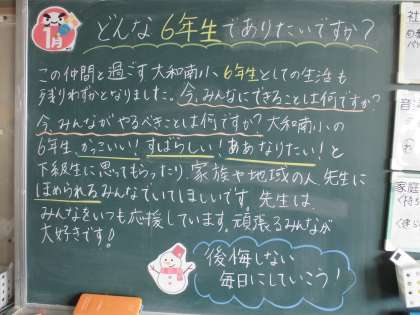 1月
どんな6年生でありたいですか？
この仲間と過ごす大和南小6年生としての生活も
残りわずかとなりました。今、みんなにできることは何ですか？
今、みんながやるべきことは何ですか？大和南小の
6年生、かっこいい！すばらしい！ああなりたい！と
下級生に思ってもらったり、家族や地域の人、先生に
ほめられるみんなでいてほしいです。先生は、
みんなをいつも応援しています。頑張るみんなが
大好きです！
後悔しない
毎日にしていこう！
社
音
家庭